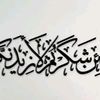 ئن شكرتم لأزيدنك